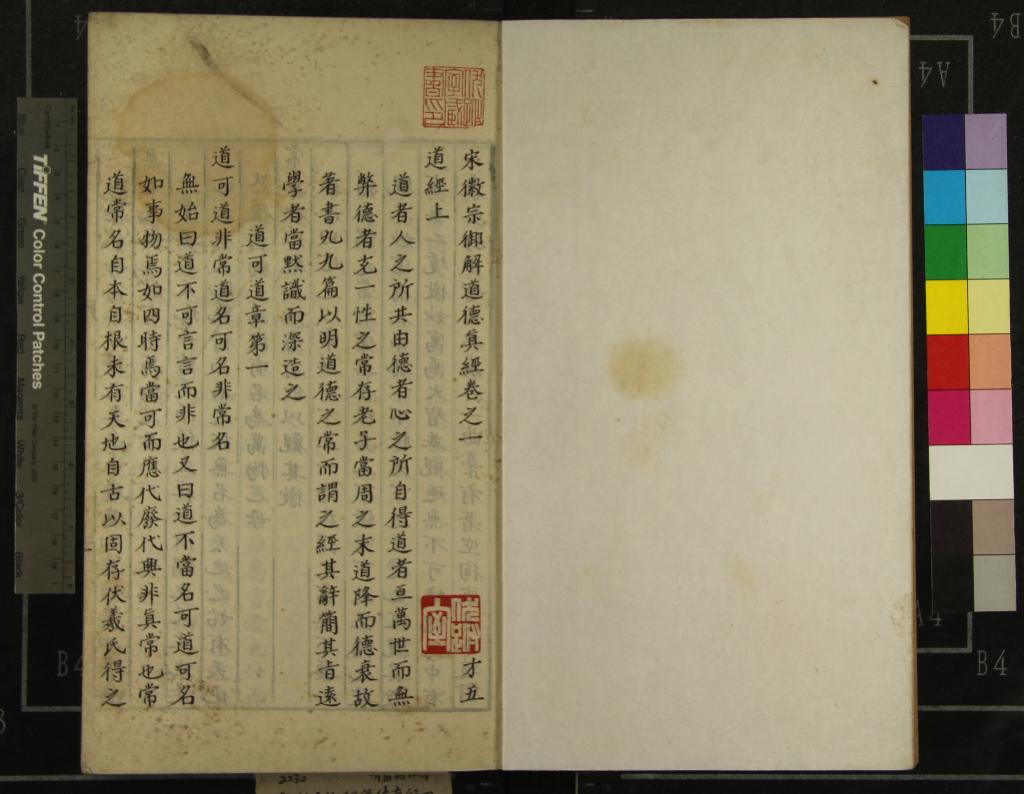 宋徽宗御解道德眞經卷之一 才五
道經上
道者人之所共由德者心之所自得道者亘萬世而無
弊德者充一性之常存老子當周之末道降而德衰故
著書九九篇以明道德之常而謂之經其辭簡其旨遠
學者當默識而深造之
道可道章第一
道可道非常道名可名非常名
無始曰道不可言言而非也又曰道不當名可道可名
如事物焉如四時焉當可而應代廢代興非眞常也常
道常名自本自根未有天地自古以固存伏羲氏得之
TIFFEN Color Control Patches
Blue
Cyan
Green
Yellow
Red
Magenta
White
3/Color
Black
B4
A4
A4
B4
B4
2230